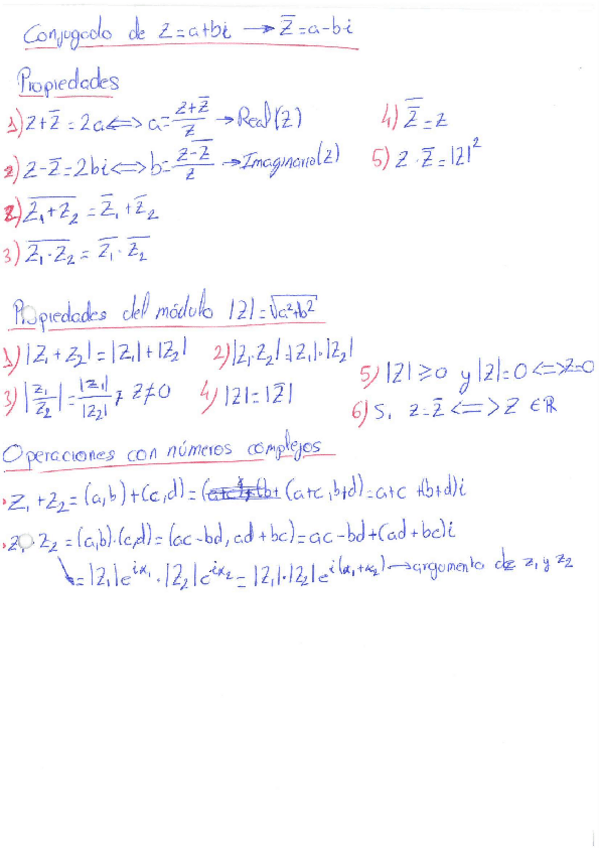 Conjugado de z=a+bi → z̅=a-bi
Propiedades
1) z+z̅=2a <=> a=(z+z̅)/2 → Real(z)
2) z-z̅=2bi <=> b=(z-z̅)/2 → Imaginario(z)
2) \overline{z₁+z₂} = z̅₁+z̅₂
3) \overline{z₁·z₂} = z̅₁·z̅₂
4) \overline{z̅}=z
5) z·z̅=|z|²
Propiedades del módulo |z|=√(a²+b²)
1) |z₁+z₂|=|z₁|+|z₂|
2) |z₁·z₂|=|z₁|·|z₂|
3) |z₁/z₂|=|z₁|/|z₂|, z≠0
4) |z|=|z̅|
5) |z|≥0 y |z|=0 <=> z=0
6) Si z=z̅ <=> z∈ℝ
Operaciones con números complejos
·z₁+z₂=(a,b)+(c,d)=(a+c,b+d)=a+c+(b+d)i
·z₁·z₂=(a,b)·(c,d)=(ac-bd,ad+bc)=ac-bd+(ad+bc)i
↳=|z₁|e^{iα₁}·|z₂|e^{iα₂}=|z₁|·|z₂|e^{i(α₁+α₂)} → argumento de z₁ y z₂